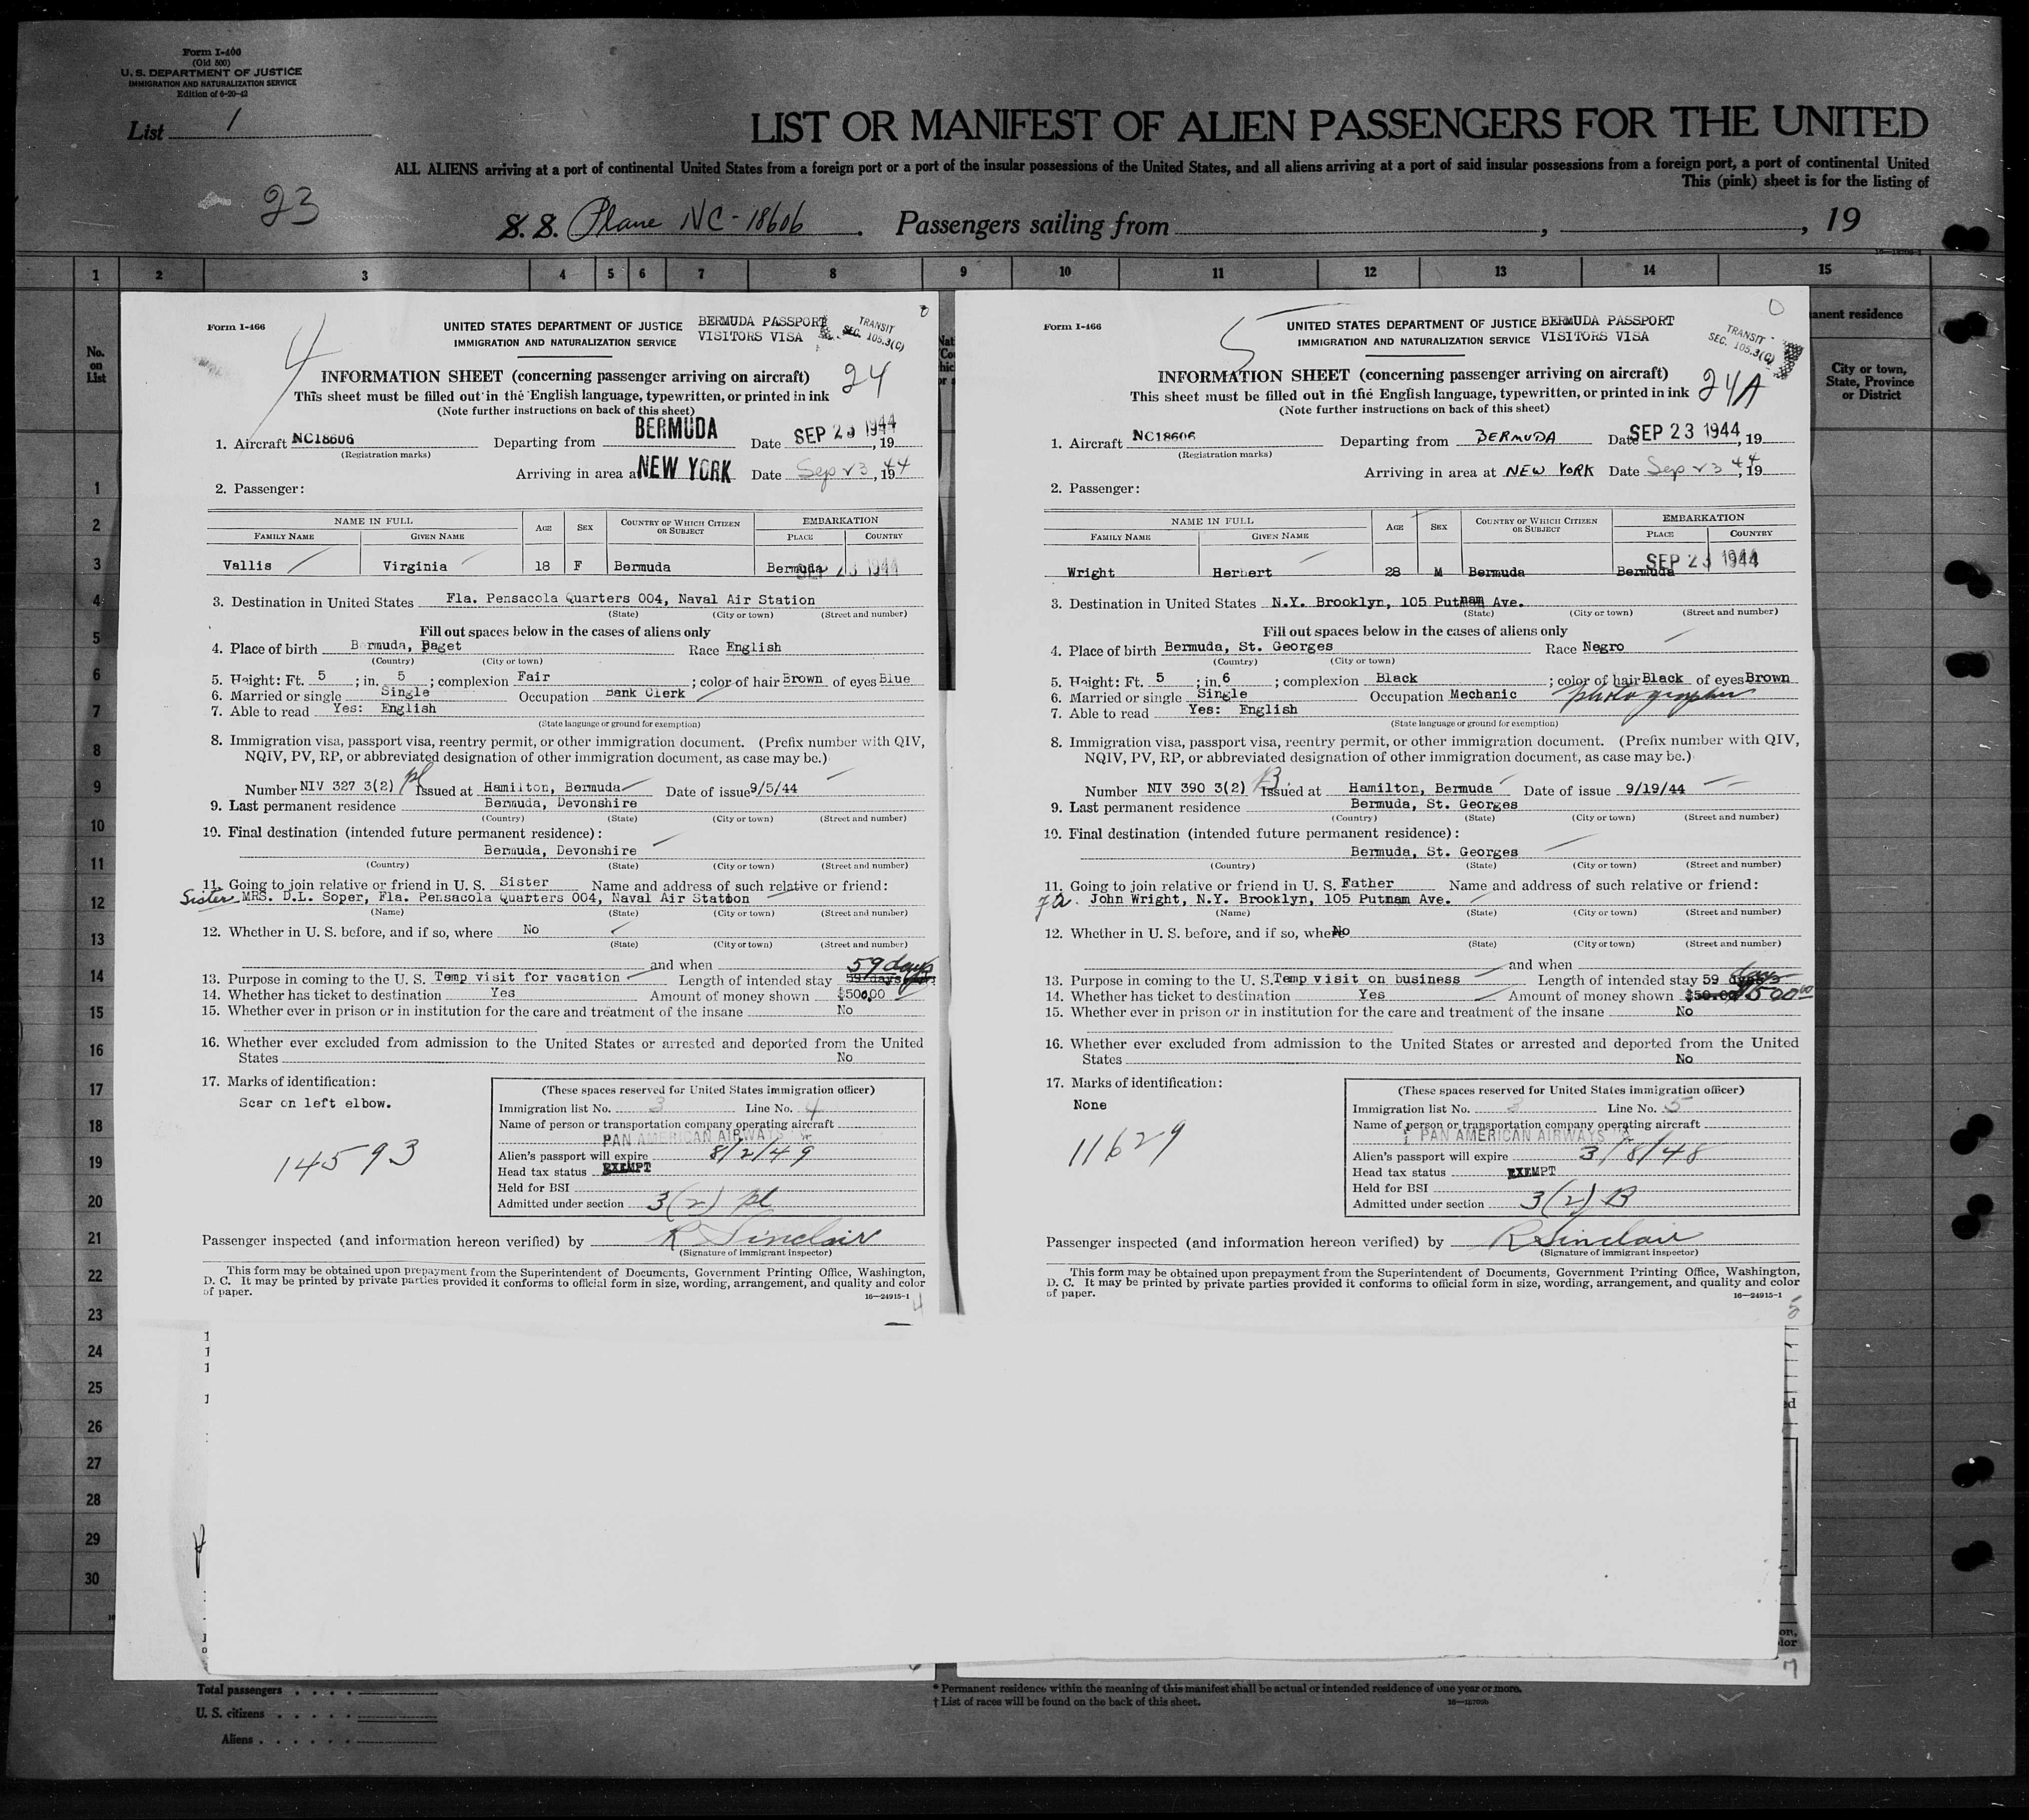 Form I-466
(Old 500)
U. S. DEPARTMENT OF JUSTICE
IMMIGRATION AND NATURALIZATION SERVICE
Edition of 6-20-42
List 1
LIST OR MANIFEST OF ALIEN PASSENGERS FOR THE UNITED
ALL ALIENS arriving at a port of continental United States from a foreign port or a port of the insular possessions of the United States, and all aliens arriving at a port of said insular possessions from a foreign port, a port of continental United
This (pink) sheet is for the listing of
23
S. S. Plane NC-18606. Passengers sailing from , , 19
1 2 3 4 5 6 7 8 9 10 11 12 13 14 15
No. on List
anent residence
City or town, State, Province or District
1
2
3
4
5
6
7
8
9
10
11
12
13
14
15
16
17
18
19
20
21
22
23
24
25
26
27
28
29
30
Form I-466
4
UNITED STATES DEPARTMENT OF JUSTICE
IMMIGRATION AND NATURALIZATION SERVICE
BERMUDA PASSPORT
VISITORS VISA
TRANSIT
SEC. 105.3(C)
24
INFORMATION SHEET (concerning passenger arriving on aircraft)
This sheet must be filled out in the English language, typewritten, or printed in ink
(Note further instructions on back of this sheet)
1. Aircraft NC18606 Departing from BERMUDA Date SEP 23 1944, 19
(Registration marks)
Arriving in area a NEW YORK Date Sep 23, 1944
2. Passenger:
NAME IN FULL AGE SEX COUNTRY OF WHICH CITIZEN OR SUBJECT EMBARKATION
FAMILY NAME GIVEN NAME PLACE COUNTRY
Vallis Virginia 18 F Bermuda Bermuda SEP 23 1944
3. Destination in United States Fla. Pensacola Quarters 004, Naval Air Station
(State) (City or town) (Street and number)
Fill out spaces below in the cases of aliens only
4. Place of birth Bermuda, Paget Race English
(Country) (City or town)
5. Height: Ft. 5 ; in. 5 ; complexion Fair ; color of hair Brown of eyes Blue
6. Married or single Single Occupation Bank Clerk
7. Able to read Yes: English
(State language or ground for exemption)
8. Immigration visa, passport visa, reentry permit, or other immigration document. (Prefix number with QIV,
NQIV, PV, RP, or abbreviated designation of other immigration document, as case may be.)
Number NIV 327 3(2) pl Issued at Hamilton, Bermuda Date of issue 9/5/44
9. Last permanent residence Bermuda, Devonshire
(Country) (State) (City or town) (Street and number)
10. Final destination (intended future permanent residence):
Bermuda, Devonshire
(Country) (State) (City or town) (Street and number)
11. Going to join relative or friend in U. S. Sister Name and address of such relative or friend:
Sister MRS. D.L. Soper, Fla. Pensacola Quarters 004, Naval Air Station
(Name) (State) (City or town) (Street and number)
12. Whether in U. S. before, and if so, where No
(State) (City or town) (Street and number)
and when
59 days
13. Purpose in coming to the U. S. Temp visit for vacation Length of intended stay
14. Whether has ticket to destination Yes Amount of money shown $500.00
15. Whether ever in prison or in institution for the care and treatment of the insane No
16. Whether ever excluded from admission to the United States or arrested and deported from the United
States No
17. Marks of identification:
Scar on left elbow.
14593
(These spaces reserved for United States immigration officer)
Immigration list No. 3 Line No. 4
Name of person or transportation company operating aircraft
PAN AMERICAN AIRWAYS
Alien's passport will expire 8/2/49
Head tax status EXEMPT
Held for BSI
Admitted under section 3(2) pl
Passenger inspected (and information hereon verified) by R Sinclair
(Signature of immigrant inspector)
This form may be obtained upon prepayment from the Superintendent of Documents, Government Printing Office, Washington,
D. C. It may be printed by private parties provided it conforms to official form in size, wording, arrangement, and quality and color
of paper.
16—24915-1
4
Form I-466
5
UNITED STATES DEPARTMENT OF JUSTICE
IMMIGRATION AND NATURALIZATION SERVICE
BERMUDA PASSPORT
VISITORS VISA
TRANSIT
SEC. 105.3(C)
24A
INFORMATION SHEET (concerning passenger arriving on aircraft)
This sheet must be filled out in the English language, typewritten, or printed in ink
(Note further instructions on back of this sheet)
1. Aircraft NC18606 Departing from BERMUDA Date SEP 23 1944, 19
(Registration marks)
Arriving in area at NEW YORK Date Sep 23, 1944
2. Passenger:
NAME IN FULL AGE SEX COUNTRY OF WHICH CITIZEN OR SUBJECT EMBARKATION
FAMILY NAME GIVEN NAME PLACE COUNTRY
SEP 23 1944
Wright Herbert 28 M Bermuda Bermuda
3. Destination in United States N.Y. Brooklyn, 105 Putnam Ave.
(State) (City or town) (Street and number)
Fill out spaces below in the cases of aliens only
4. Place of birth Bermuda, St. Georges Race Negro
(Country) (City or town)
5. Height: Ft. 5 ; in. 6 ; complexion Black ; color of hair Black of eyes Brown
6. Married or single Single Occupation Mechanic photographer
7. Able to read Yes: English
(State language or ground for exemption)
8. Immigration visa, passport visa, reentry permit, or other immigration document. (Prefix number with QIV,
NQIV, PV, RP, or abbreviated designation of other immigration document, as case may be.)
Number NIV 390 3(2) B Issued at Hamilton, Bermuda Date of issue 9/19/44
9. Last permanent residence Bermuda, St. Georges
(Country) (State) (City or town) (Street and number)
10. Final destination (intended future permanent residence):
Bermuda, St. Georges
(Country) (State) (City or town) (Street and number)
11. Going to join relative or friend in U. S. Father Name and address of such relative or friend:
Fa. John Wright, N.Y. Brooklyn, 105 Putnam Ave.
(Name) (State) (City or town) (Street and number)
12. Whether in U. S. before, and if so, where No
(State) (City or town) (Street and number)
and when
13. Purpose in coming to the U. S. Temp visit on business Length of intended stay 59 days
14. Whether has ticket to destination Yes Amount of money shown $50.00 $500.00
15. Whether ever in prison or in institution for the care and treatment of the insane No
16. Whether ever excluded from admission to the United States or arrested and deported from the United
States No
17. Marks of identification:
None
11629
(These spaces reserved for United States immigration officer)
Immigration list No. 3 Line No. 5
Name of person or transportation company operating aircraft
PAN AMERICAN AIRWAYS
Alien's passport will expire 3/8/48
Head tax status EXEMPT
Held for BSI
Admitted under section 3(2) B
Passenger inspected (and information hereon verified) by R Sinclair
(Signature of immigrant inspector)
This form may be obtained upon prepayment from the Superintendent of Documents, Government Printing Office, Washington,
D. C. It may be printed by private parties provided it conforms to official form in size, wording, arrangement, and quality and color
of paper.
16—24915-1
5
7
Total passengers
U. S. citizens
Aliens
* Permanent residence within the meaning of this manifest shall be actual or intended residence of one year or more.
† List of races will be found on the back of this sheet.